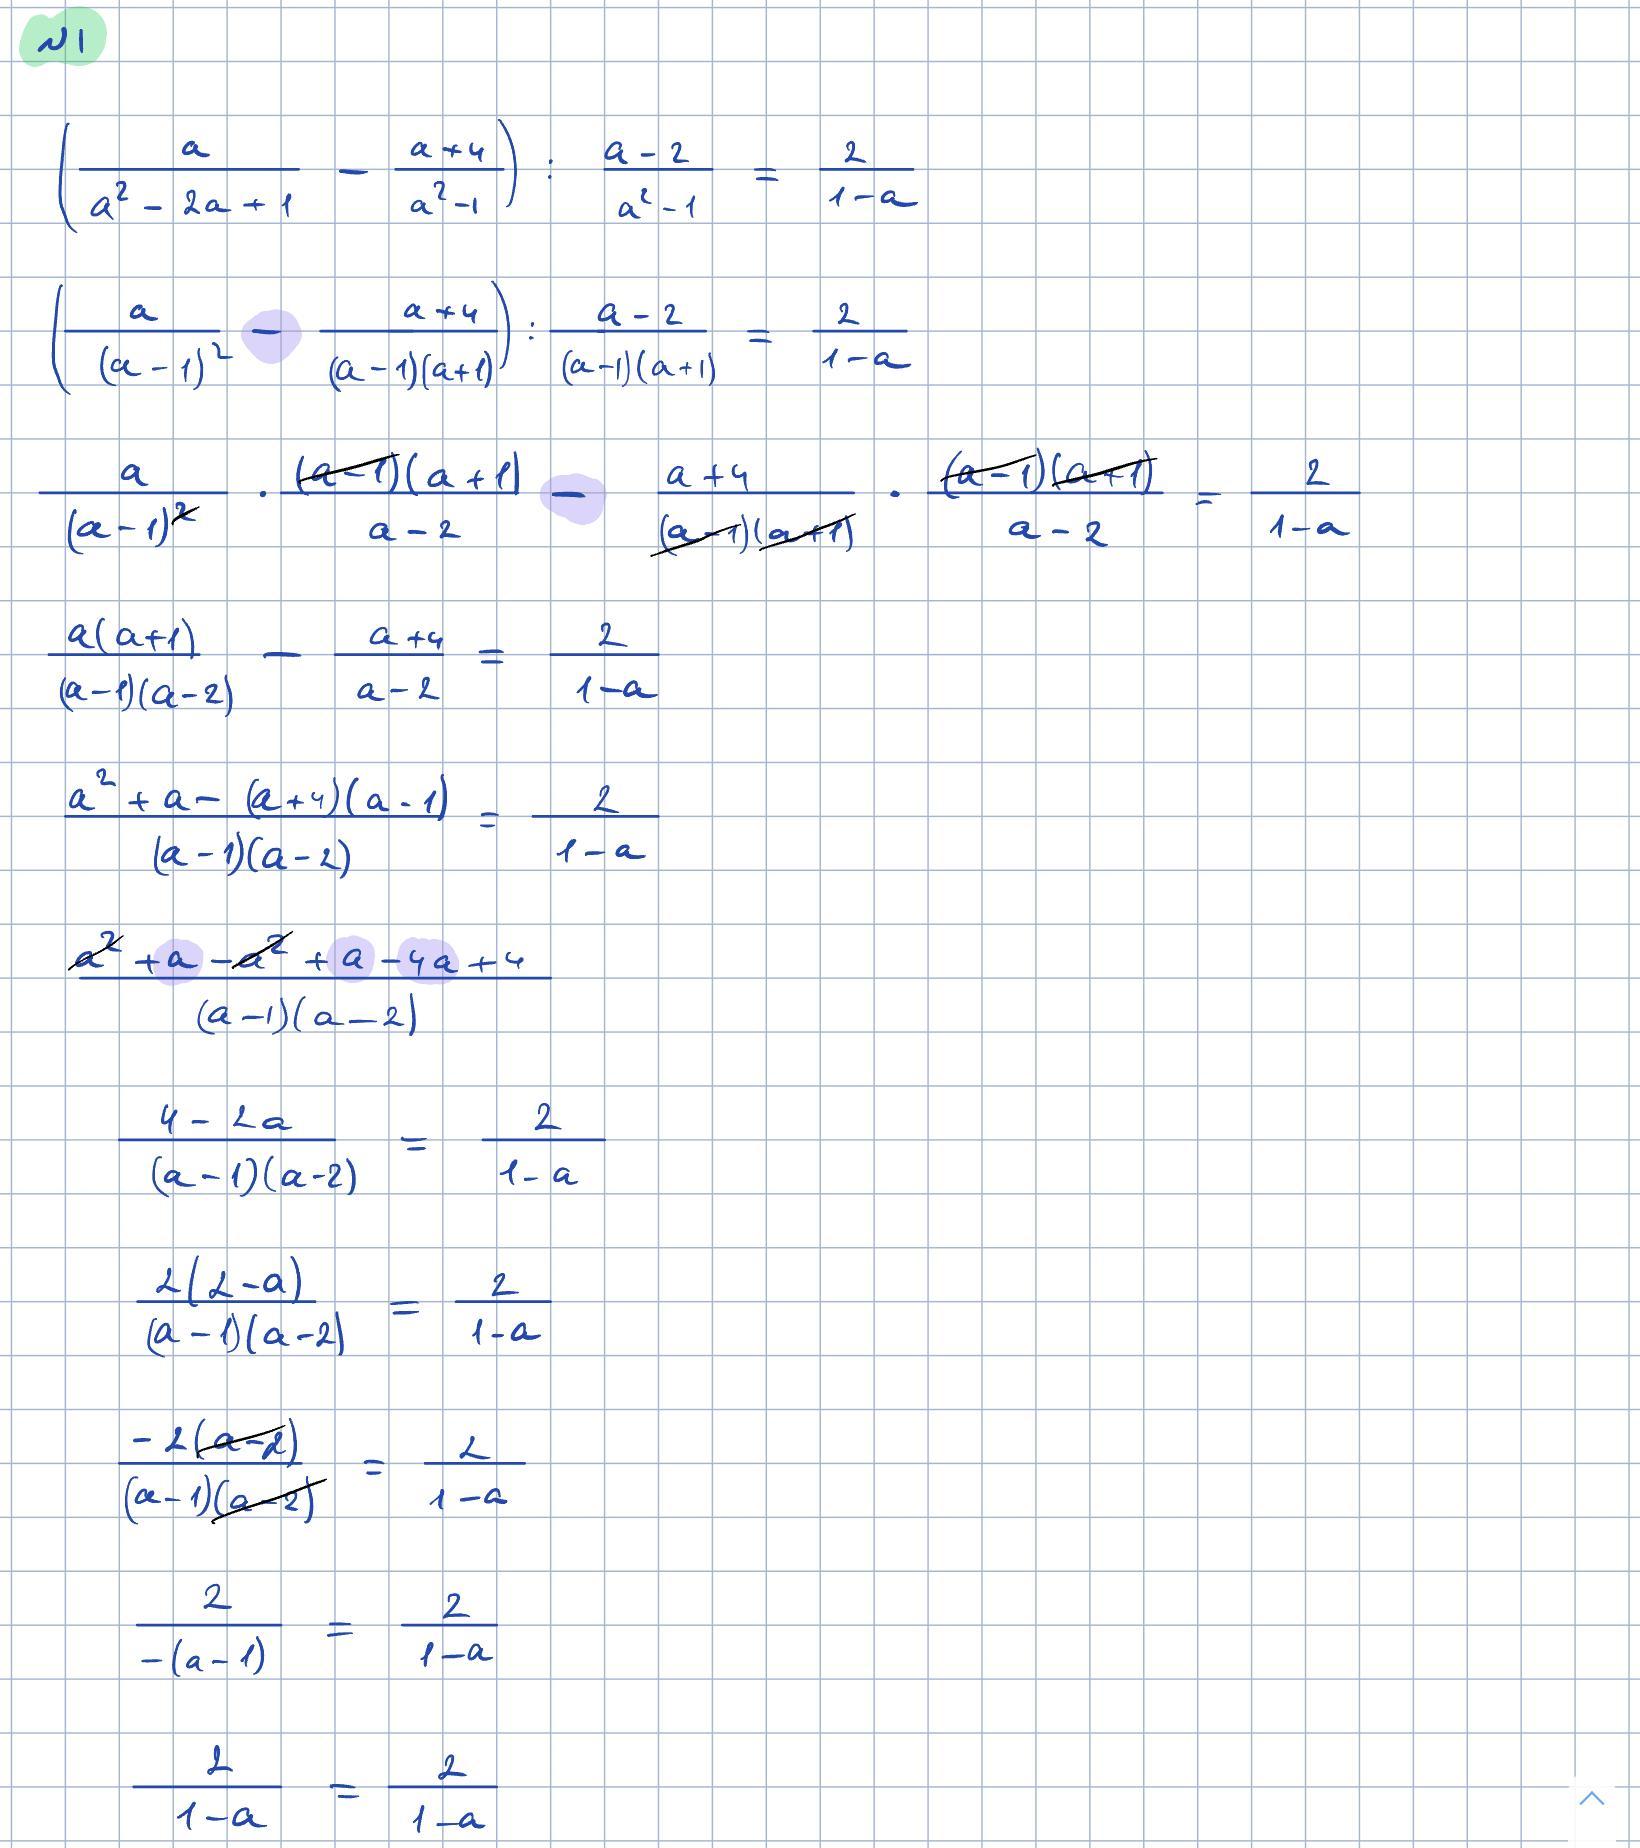 №1
(a/(a² - 2a + 1) - (a+4)/(a² - 1)) : (a - 2)/(a² - 1) = 2/(1 - a)
(a/(a - 1)² - (a+4)/((a - 1)(a+1))) : (a - 2)/((a-1)(a+1)) = 2/(1 - a)
a/(a - 1)² · (a - 1)(a + 1)/(a - 2) - (a + 4)/((a - 1)(a+1)) · (a - 1)(a+1)/(a - 2) = 2/(1 - a)
a(a+1)/((a-1)(a-2)) - (a+4)/(a - 2) = 2/(1 - a)
(a² + a - (a+4)(a - 1))/((a - 1)(a - 2)) = 2/(1 - a)
(a² + a - a² + a - 4a + 4)/((a - 1)(a - 2))
(4 - 2a)/((a - 1)(a-2)) = 2/(1 - a)
2(2-a)/((a - 1)(a-2)) = 2/(1-a)
-2(a-2)/((a-1)(a-2)) = 2/(1-a)
2/(-(a-1)) = 2/(1-a)
2/(1-a) = 2/(1-a)